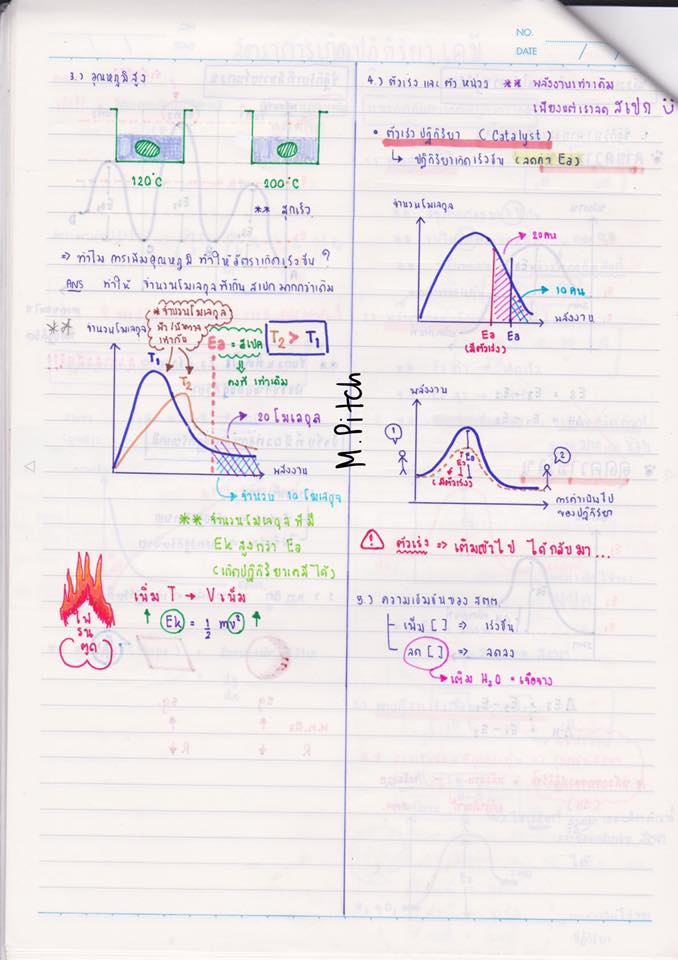 NO.
DATE / /
3.) อุณหภูมิสูง
120°C
200°C
** สุกเร็ว
⇒ ทำไม การเพิ่มอุณหภูมิ ทำให้อัตราเกิดเร็วขึ้น ?
ANS ทำให้ จำนวนโมเลกุลที่เกิน สเปค มากกว่าเดิม
* จำนวนโมเลกุล
เท่ากัน
** จำนวนโมเลกุล
Ea = สเปค
T2 > T1
คงที่ เท่าเดิม
T1
T2
20 โมเลกุล
พลังงาน
จำนวน 10 โมเลกุล
** จำนวนโมเลกุลที่มี
Ek สูงกว่า Ea
(เกิดปฏิกิริยาเคมีได้)
เพิ่ม T → V เพิ่ม
↑ Ek = 1/2 mv² ↑
ไฟ
ลน
ตูด
M.Pitch
4.) ตัวเร่ง และ ตัวหน่วง ** พลังงานเท่าเดิม
เพียงแต่เราลด สเปค
• ตัวเร่งปฏิกิริยา (Catalyst)
↳ ปฏิกิริยาเกิดเร็วขึ้น (ลดค่า Ea)
จำนวนโมเลกุล
20 คน
10 คน
พลังงาน
Ea Ea
(มีตัวเร่ง)
พลังงาน
1
2
Ea
Ea
(มีตัวเร่ง)
การดำเนินไป
ของปฏิกิริยา
! ตัวเร่ง ⇒ เติมเข้าไป ได้กลับมา...
5.) ความเข้มข้นของ สตต.
เพิ่ม [ ] ⇒ เร็วขึ้น
ลด [ ] ⇒ ลดลง
เติม H2O = เจือจาง